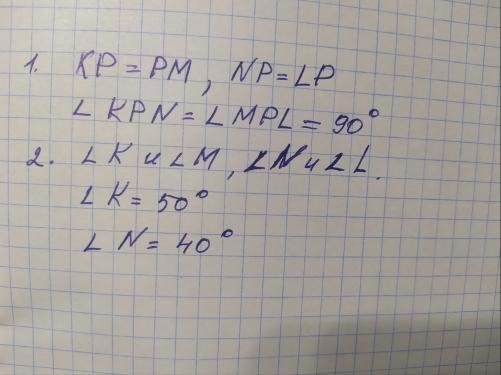 1. KP = PM, NP = LP
∠ KPN = ∠ MPL = 90°
2. ∠ K и ∠ M, ∠ N и ∠ L.
∠ K = 50°
∠ N = 40°